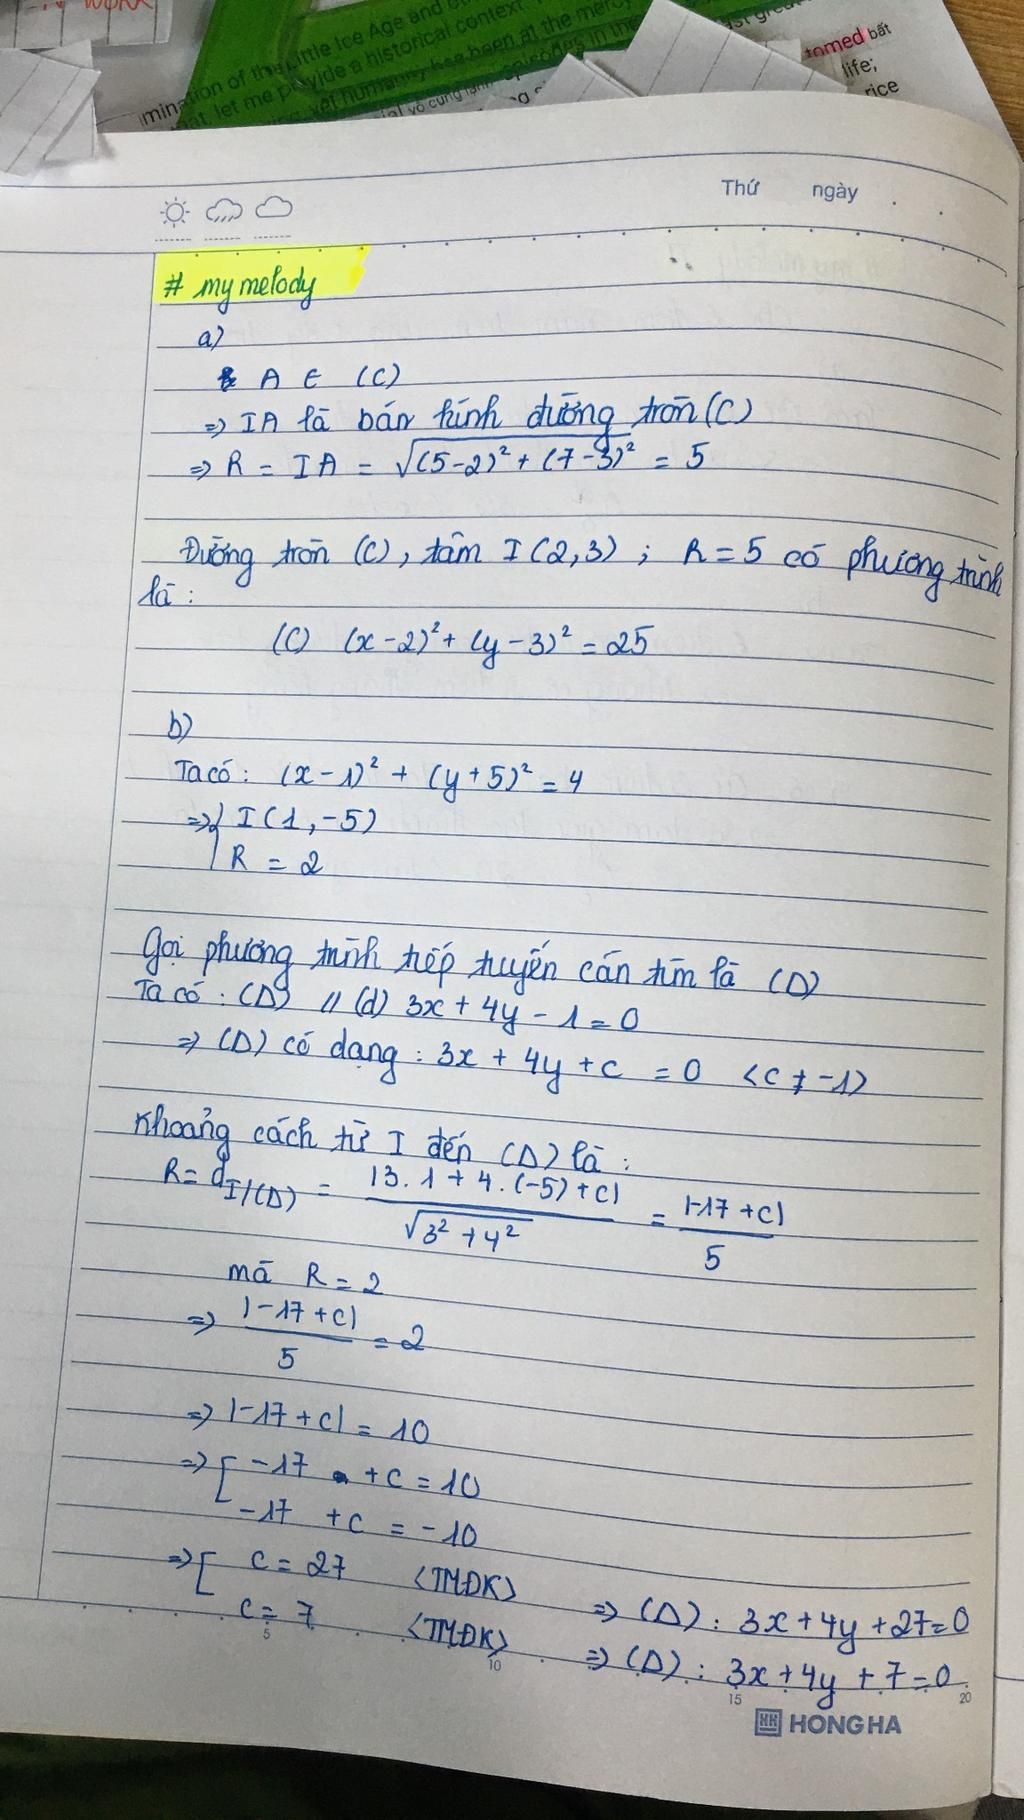 WORK
mination of the Little Ice Age and
let me provide a historical context.
yet humanity has been at the mercy
vô cùng
episodes in the
tomed bất
life;
rice
Thứ ngày
# my melody
a)
A ∈ (C)
=> IA là bán kính đường tròn (C)
=> R = IA = √(5-2)² + (7-3)² = 5
Đường tròn (C), tâm I (2,3) ; R = 5 có phương trình
là :
(C) (x-2)² + (y-3)² = 25
b)
Ta có : (x-1)² + (y+5)² = 4
=> { I (1,-5)
R = 2
Gọi phương trình tiếp tuyến cần tìm là (Δ)
Ta có : (Δ) // (d) 3x + 4y - 1 = 0
=> (Δ) có dạng : 3x + 4y + c = 0 <c ≠ -1>
Khoảng cách từ I đến (Δ) là :
R = d I/(Δ) = |3.1 + 4.(-5) + c| / √3² + 4² = |-17 + c| / 5
mà R = 2
=> |-17 + c| / 5 = 2
=> |-17 + c| = 10
=> [ -17 + c = 10
-17 + c = -10
=> [ c = 27 <TMĐK> => (Δ) : 3x + 4y + 27 = 0
c = 7 <TMĐK> => (Δ) : 3x + 4y + 7 = 0
5 10 15 20
HONG HA